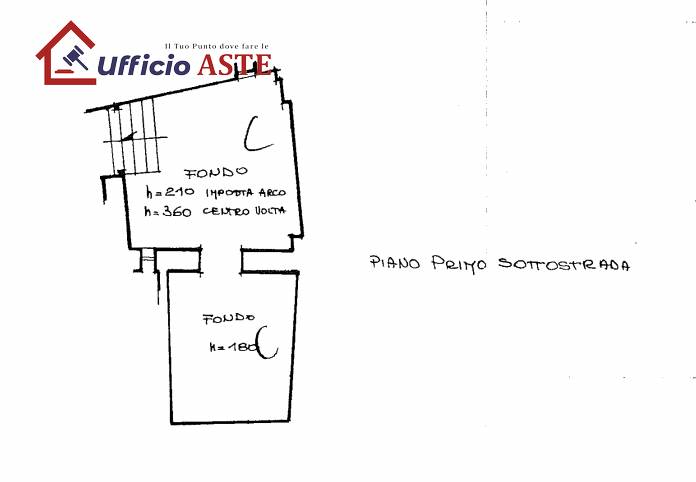 Il Tuo Punto dove fare le
Ufficio ASTE
C
FONDO
h=210 IMPOSTA ARCO
h=360 CENTRO VOLTA
PIANO PRIMO SOTTOSTRADA
FONDO
h=180
C